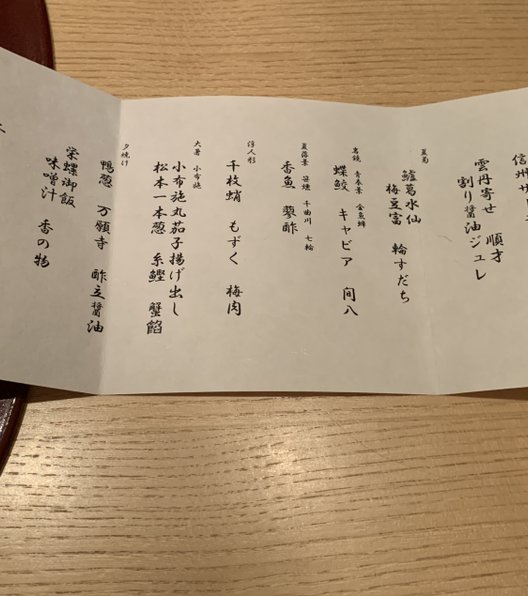 信州サ
雲丹寄せ 順才
割り醤油ジュレ
夏菊
鱸葛水仙
梅豆富 輪すだち
金魚鉢
蝶鮫 キャビア 間八
夏落葉 笹燻 千曲川 七輪
香魚 蓼酢
浮人形
千枚蛸 もずく 梅肉
大暑 小布施
小布施丸茄子揚げ出し
松本一本葱 糸鰹 蟹餡
夕焼け
鴨葱 万願寺 酢立醤油
栄螺御飯
味噌汁 香の物